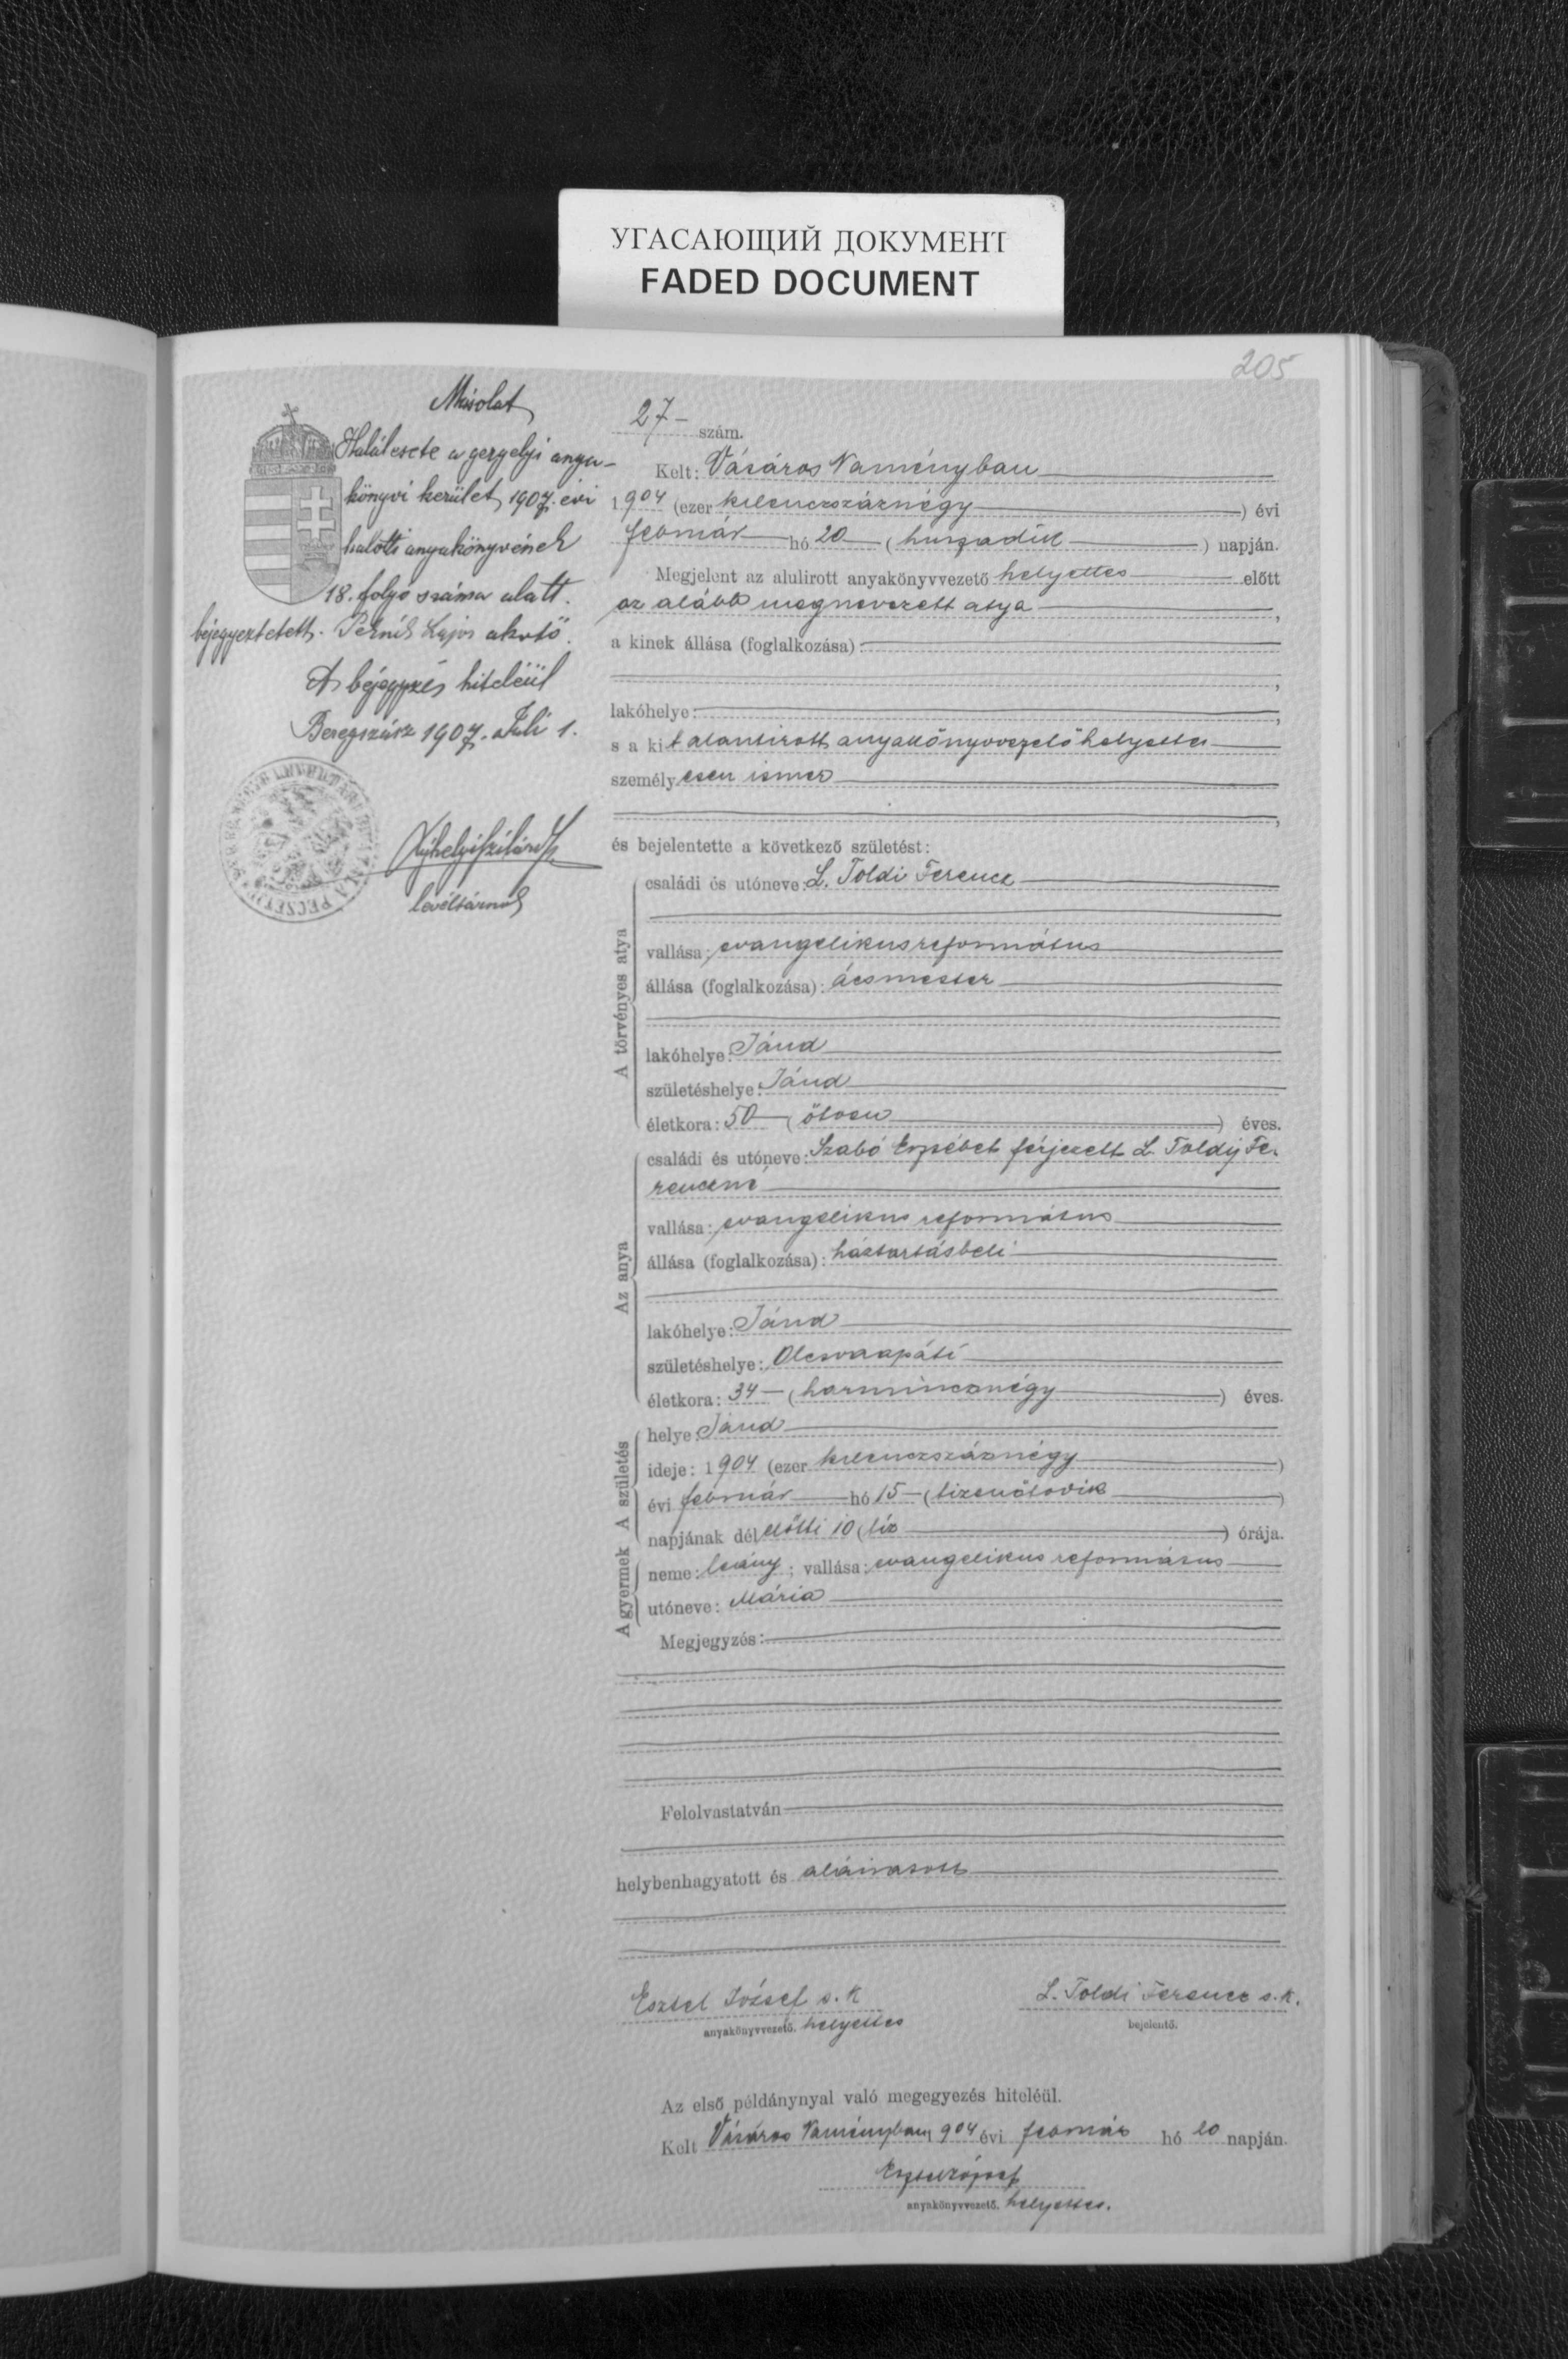 УГАСАЮЩИЙ ДОКУМЕНТ
FADED DOCUMENT
205
Másolat
Halálesete a gergelyi anya-
könyvi kerület 1907. évi
halotti anyakönyvének
18. folyó száma alatt
bejegyeztetett. Lajos akvtő.
A bejegyzés hiteléül
Beregszász 1907. Juli 1.
levéltárnok
27 - szám.
Kelt: Vásáros Naményban
1904 (ezer kilenczszáznégy) évi
február hó 20 (huszadik) napján.
Megjelent az alulirott anyakönyvvezető helyettes előtt
az alább megnevezett atya,
a kinek állása (foglalkozása):
,
lakóhelye:,
s a kit alantirott anyakönyvvezető helyettes
személyesen ismer
,
és bejelentette a következő születést:
A törvényes atya
családi és utóneve: L. Toldi Ferencz
vallása: evangelikus református
állása (foglalkozása): ácsmester
lakóhelye: Jánd
születéshelye: Jánd
életkora: 50 (ötven) éves.
Az anya
családi és utóneve: Szabó Erzsébet férjezett L. Toldy Fe-
renczné
vallása: evangelikus református
állása (foglalkozása): háztartásbeli
lakóhelye: Jánd
születéshelye: Olcsvaapáti
életkora: 34 - (harmincznégy) éves.
A születés
helye: Jánd
ideje: 1904 (ezer kilenczszáznégy)
évi február hó 15 - (tizenötödik)
napjának délelőtti 10 (tíz) órája.
A gyermek
neme: leány; vallása: evangelikus református
utóneve: Mária
Megjegyzés:
Felolvastatván
helybenhagyatott és aláiratott
Esztel József s. k L. Toldi Ferencz s. k.
anyakönyvvezető. helyettes bejelentő.
Az első példánynyal való megegyezés hiteléül.
Kelt Vásáros Naményban 1904 évi február hó 20 napján.
Esztel József
anyakönyvvezető. helyettes.